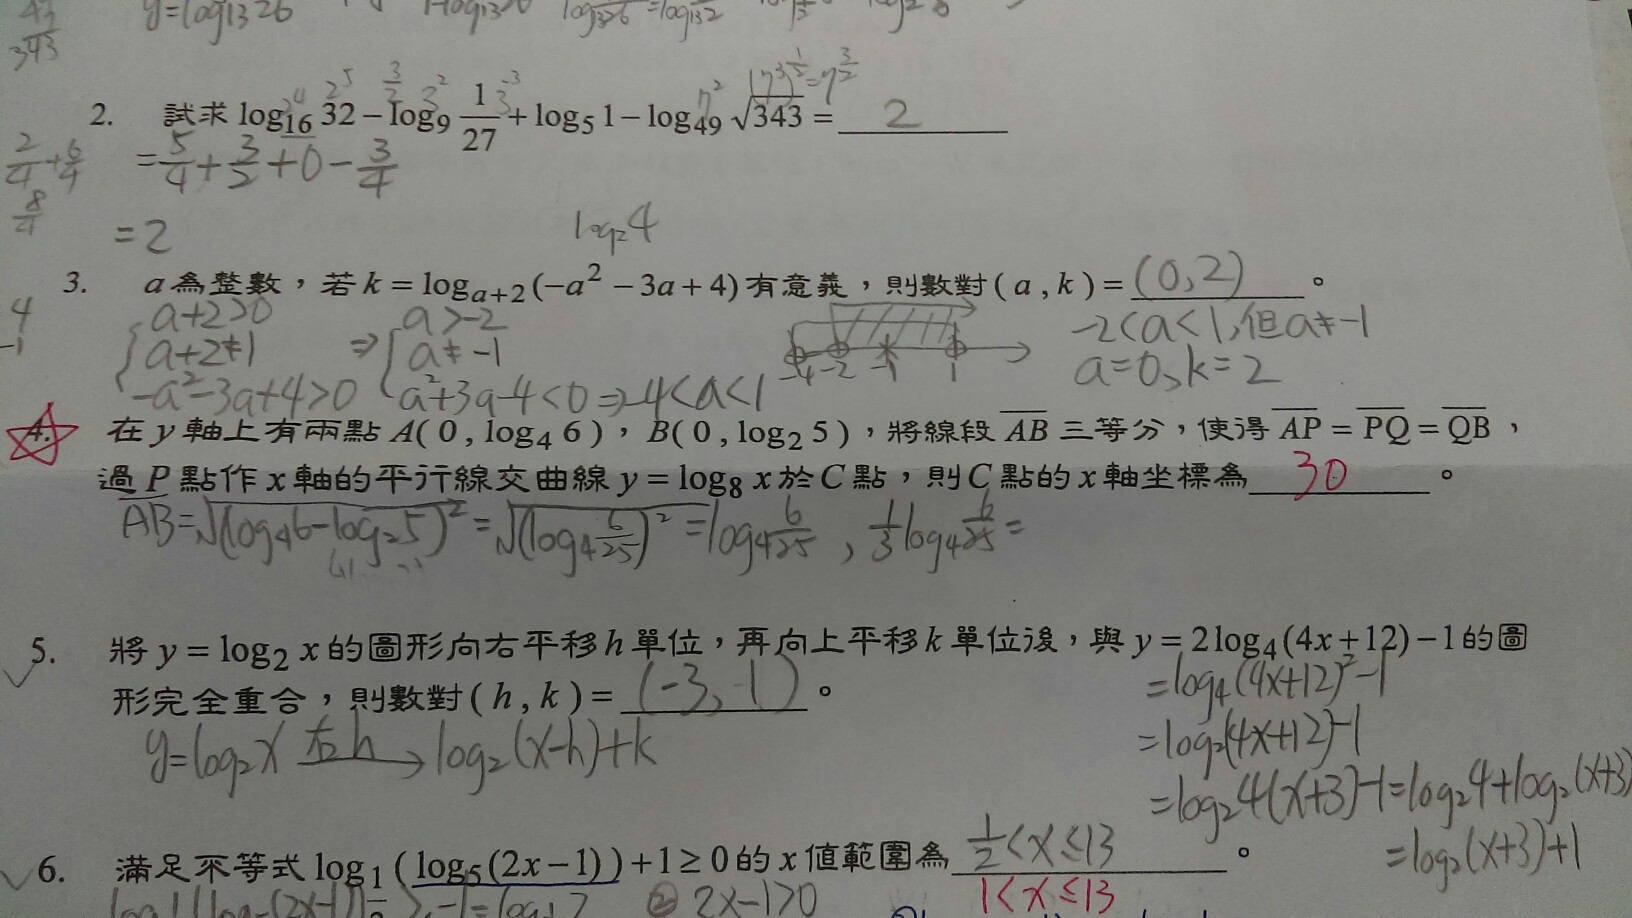 y=log₁₃26
343
2. 試求 log₁₆ 32 − log₉ 1/27 + log₅ 1 − log₄₉ √343 = 2
(7³)^(1/2) = 7^(3/2)
= 5/4 + 3/2 + 0 − 3/4
2/4 + 6/4
8/4
= 2
log₂4
3. a 為整數，若 k = log_(a+2) (−a² − 3a + 4) 有意義，則數對 ( a , k ) = (0,2) 。
4
-1
a+2>0 a>-2 -2<a<1,但a≠-1
a+2≠1 ⇒ a≠-1 -4 -2 -1 1 a=0,k=2
-a²-3a+4>0 a²+3a-4<0 ⇒ -4<a<1
4. 在 y 軸上有兩點 A( 0 , log₄ 6 )，B( 0 , log₂ 5 )，將線段 AB 三等分，使得 AP = PQ = QB，
過 P 點作 x 軸的平行線交曲線 y = log₈ x 於 C 點，則 C 點的 x 軸坐標為 30 。
AB=√(log₄6-log₂5)² = √(log₄ 6/25)² = log₄ 6/25 , 1/3 log₄ 6/25 =
5. 將 y = log₂ x 的圖形向右平移 h 單位，再向上平移 k 單位後，與 y = 2 log₄ (4x + 12) − 1 的圖
形完全重合，則數對 ( h , k ) = (-3, 1) 。
=log₄(4x+12)²-1
y=log₂x 右h → log₂(x-h)+k
=log₂(4x+12)-1
=log₂4(x+3)-1=log₂4+log₂(x+3)
=log₂(x+3)+1
6. 滿足不等式 log₁ ( log₅ (2x − 1) ) + 1 ≥ 0 的 x 值範圍為 1/2<x≤13 。
1<x≤13
② 2x-1>0